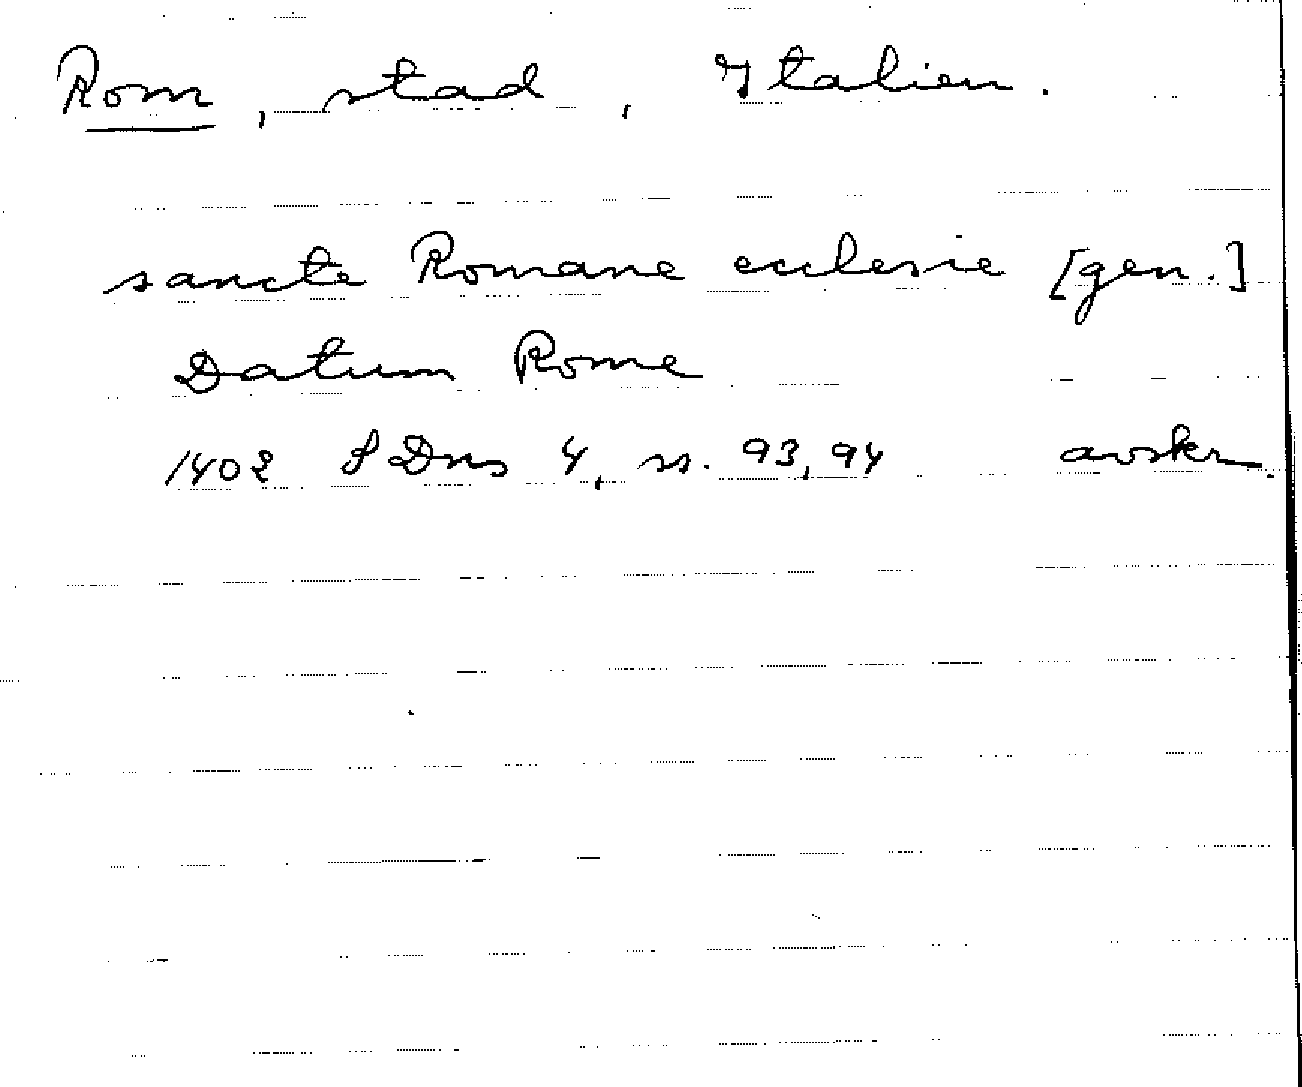 Rom, stad, Italien.
sancte Romane ecclesie [gen.]
Datum Rome
1402 SDns 4, ss. 93, 94 avskr.